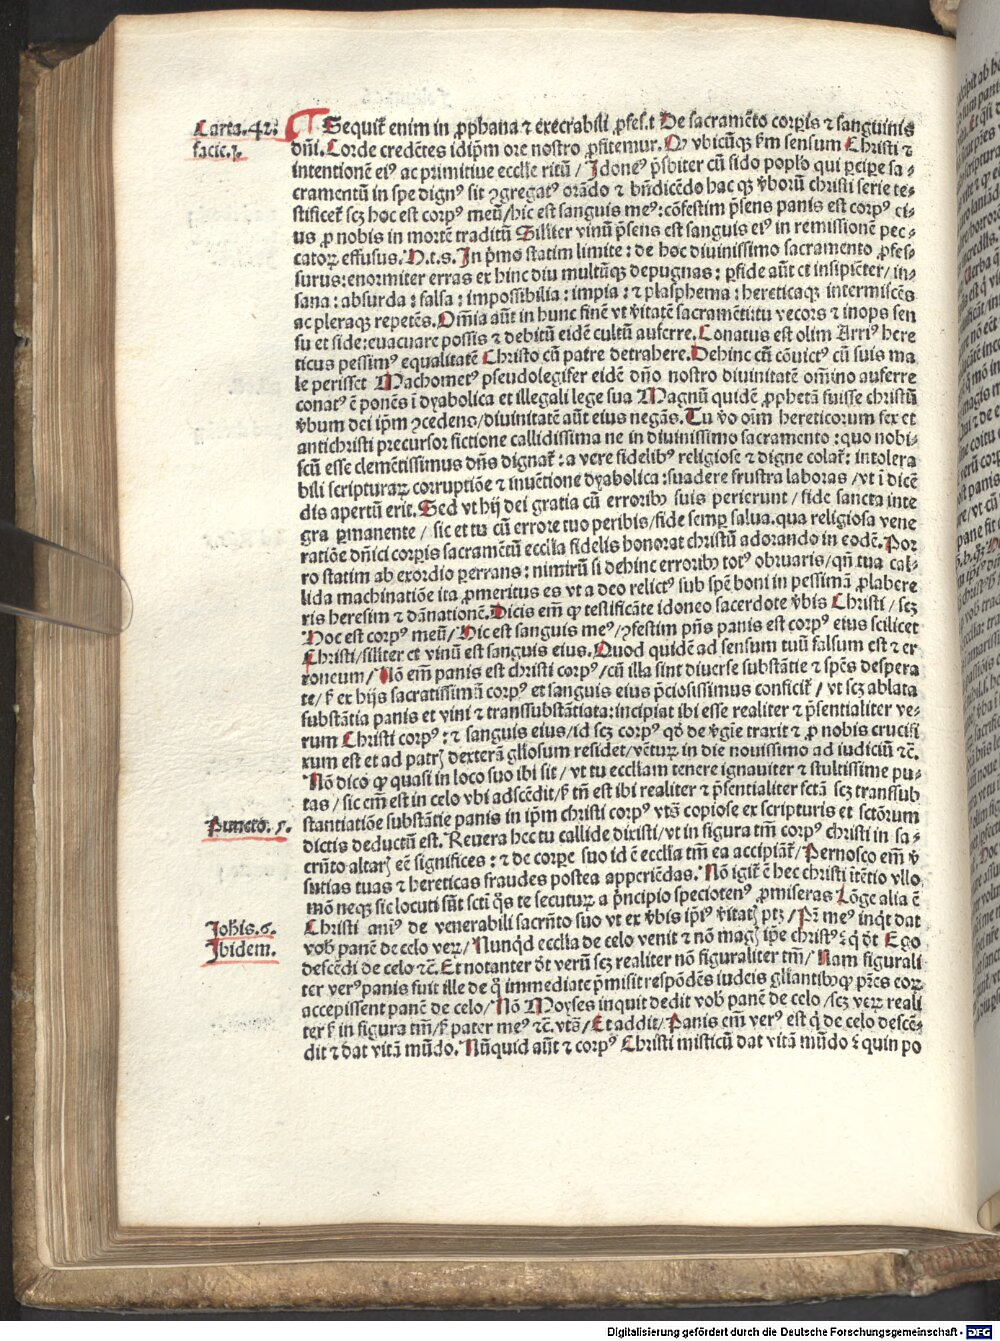 Carta.42.
facie.j.
Sequit̃ enim in ꝓphana ⁊ execrabili ꝓfes.t De sacramẽto corꝑis ⁊ sanguinis
dñi. Corde credẽtes idip̃m ore nostro ꝓfitemur. Qꝫ vbicũqꝫ s̃m sensum Christi ⁊
intentionẽ eiꝰ ac primitiue ecclẽ ritũ / Jdoneꝰ p̃sbiter cũ sido poplo qui ꝑciꝑe sa⸗
cramentũ in spe dignꝰ sit ꝯgregatꝰ orãdo ⁊ bñdicẽdo hac qꝫ v̾borũ christi serie te⸗
stificet̃ scꝫ hoc est corpꝰ meũ/hic est sanguis meꝰ: cõfestim p̃sens panis est corpꝰ ei⸗
us ꝓ nobis in mortẽ traditũ Sillier vinũ p̃sens est sanguis eiꝰ in remissionẽ pec⸗
catoꝝ effusus. N.t.s. Jn p̃mo statim limite: de hoc diuinissimo sacramento ꝓfes⸗
surus: enormiter erras ex hinc diu multũqꝫ depugnas: ꝑfide aũt et insipiẽter/ in⸗
sana: absurda: falsa: impossibilia: impia: ⁊ plasphema: hereticaqꝫ intermiscẽs
ac pleraqꝫ repetẽs. Oĩa aũt in hunc finẽ vt v̾itatẽ sacramẽti: tu vecors ⁊ inops sen
su et side: euacuare possis ⁊ debitũ eidẽ cultũ auferre. Conatus est olim Arriꝰ here
ticus pessimꝰ equalitatẽ Christo cũ patre detrahere. Dehinc cũ cõuictꝰ cũ suis ma
le perisset Machometꝰ pseudolegifer eidẽ dño nostro diuinitatẽ om̃ino auferre
conatꝰ ẽ ponẽs ĩ dyabolica et illegali lege sua Magnũ quidẽ ꝓphetã fuisse christũ
v̾bum dei ip̃m ꝯcedens/diuinitatẽ aũt eius negãs. Tu v̾o oĩm hereticorum fex et
antichristi precursor fictione callidissima ne in diuinissimo sacramento: quo nobi⸗
scũ esse clemẽtissimus dñs dignat̃: a vere fidelibꝰ religiose ⁊ digne colat̃: intolera
bili scripturaꝝ corruptiõe ⁊ inuẽtione dyabolica: suadere frustra laboras / vt ĩ dicẽ
dis apertũ erit. Sed vt hij dei gratia cũ erroribꝫ suis perierunt / fide sancta inte
gra ꝑmanente / sic et tu cũ errore tuo peribis/fide semꝑ salua. qua religiosa vene
ratiõe dñici corꝑis sacramẽtũ ecclia fidelis honorat christũ adorando in eodẽ. Por
ro statim ab exordio ꝑerrans: nimirũ si dehinc erroribꝫ totꝰ obruaris/ qñ tua cal⸗
lida machinatiõe ita ꝓmeritus es vt a deo relictꝰ sub spẽ boni in pessimã ꝓlabere
ris heresim ⁊ dãnationẽ. Dicis em̃ ꝙ testificãte idoneo sacerdote v̾bis Christi / scꝫ
Hoc est corpꝰ meũ/ Hic est sanguis meꝰ/ ꝯfestim p̃ns panis est corpꝰ eius scilicet
Christi/ siliter et vinũ est sanguis eius. Quod quidẽ ad sensum tuũ falsum est ⁊ er
roneum/ Nõ em̃ panis est christi corpꝰ/ cũ illa sint diuerse substãtie ⁊ spẽs despera
te/ s̃ ex hijs sacratissimũ corpꝰ et sanguis eius p̃ciosissimus conficit̃ / vt scꝫ ablata
substãtia panis et vini ⁊ transsubstãtiata: incipiat ibi esse realiter ⁊ p̃sentialiter ve⸗
rum Christi corpꝰ: ⁊ sanguis eius/ id scꝫ corpꝰ qđ de v̾gĩe traxit ⁊ ꝓ nobis crucifi
xum est et ad patrꝭ dexterã gl̃iosum residet/ vẽturꝰ in die nouissimo ad iudiciũ ⁊c̃.
Nõ dico ꝙ quasi in loco suo ibi sit / vt tu eccliam tenere ignauiter ⁊ stultissime pu⸗
tas / sic em̃ est in celo vbi adscẽdit/ s̃ tñ est ibi realiter ⁊ p̃sentialiter fctã scꝫ transsub
Puncto. 5.
stantiatiõe substãtie panis in ip̃m christi corpꝰ vt̃s copiose ex scripturis et sctõrum
dictis deductũ est. Reuera hec tu callide dixisti/ vt in figura tm̃ corpꝰ christi in sa⸗
crñto altarꝭ eẽ significes: ⁊ de corꝑe suo id ẽ ecclia tm̃ ea accipiãt̃/ Pernosco em̃ v̾
sutias tuas ⁊ hereticas fraudes postea apperiẽdas. Nõ igit̃ ẽ hec christi ĩtẽtio vllo
mõ neqꝫ sic locuti sũt scti q̃s te secuturꝝ a p̃ncipio specioteñ ꝓmiseras Lõge alia ẽ
Johis.6.
Christi aniꝰ de venerabili sacrñto suo vt ex v̾bis ip̃iꝰ v̾itatꝭ ptꝫ/ Pr̃ meꝰ inq̃t dat
Jbidem.
vob̃ panẽ de celo veꝝ/ Nunqd̃ ecclia de celo venit ⁊ nõ magꝭ ip̃e christꝰ: q̃ dt̃ Ego
descẽdi de celo ⁊c̃. Et notanter dt̃ verũ scꝫ realiter nõ figuraliter tm̃/ Nam figurali
ter verꝰ panis fuit ille de q̃ immediate p̃misit respõdẽs iudeis gl̃iantibꝫ ꝙ pr̃es eoꝝ
accepissent panẽ de celo/ Nõ Moyses inquit dedit vob̃ panẽ de celo / scꝫ veꝝ reali
ter s̃ in figura tm̃/ s̃ pater meꝰ ⁊c̃. vt̃s/ Et addit/ Panis em̃ verꝰ est q̃ de celo descẽ⸗
dit ⁊ dat vitã mũdo. Nũquid aũt ⁊ corpꝰ Christi misticũ dat vitã mũdo: quin po
Digitalisierung gefördert durch die Deutsche Forschungsgemeinschaft - DFG